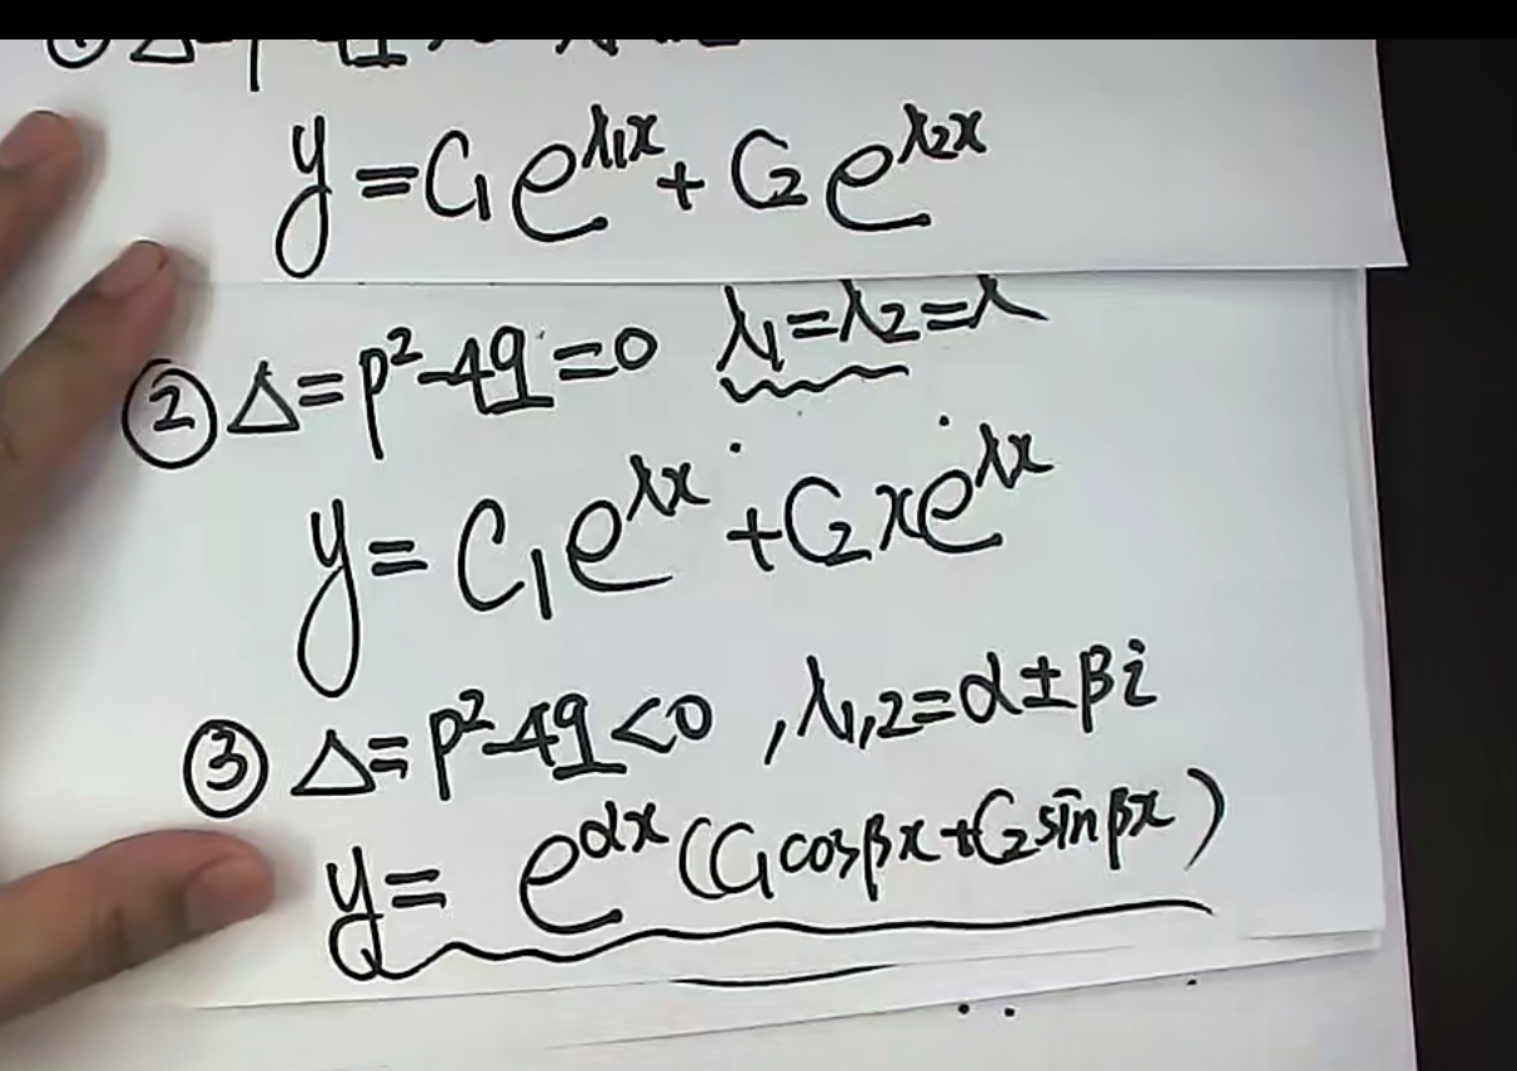 y = C₁e^{λ₁x} + C₂e^{λ₂x}
② Δ = p² - 4q = 0 λ₁ = λ₂ = λ
y = C₁e^{λx} + C₂xe^{λx}
③ Δ = p² - 4q < 0 , λ₁,₂ = α ± βi
y = e^{αx}(C₁cosβx + C₂sinβx)